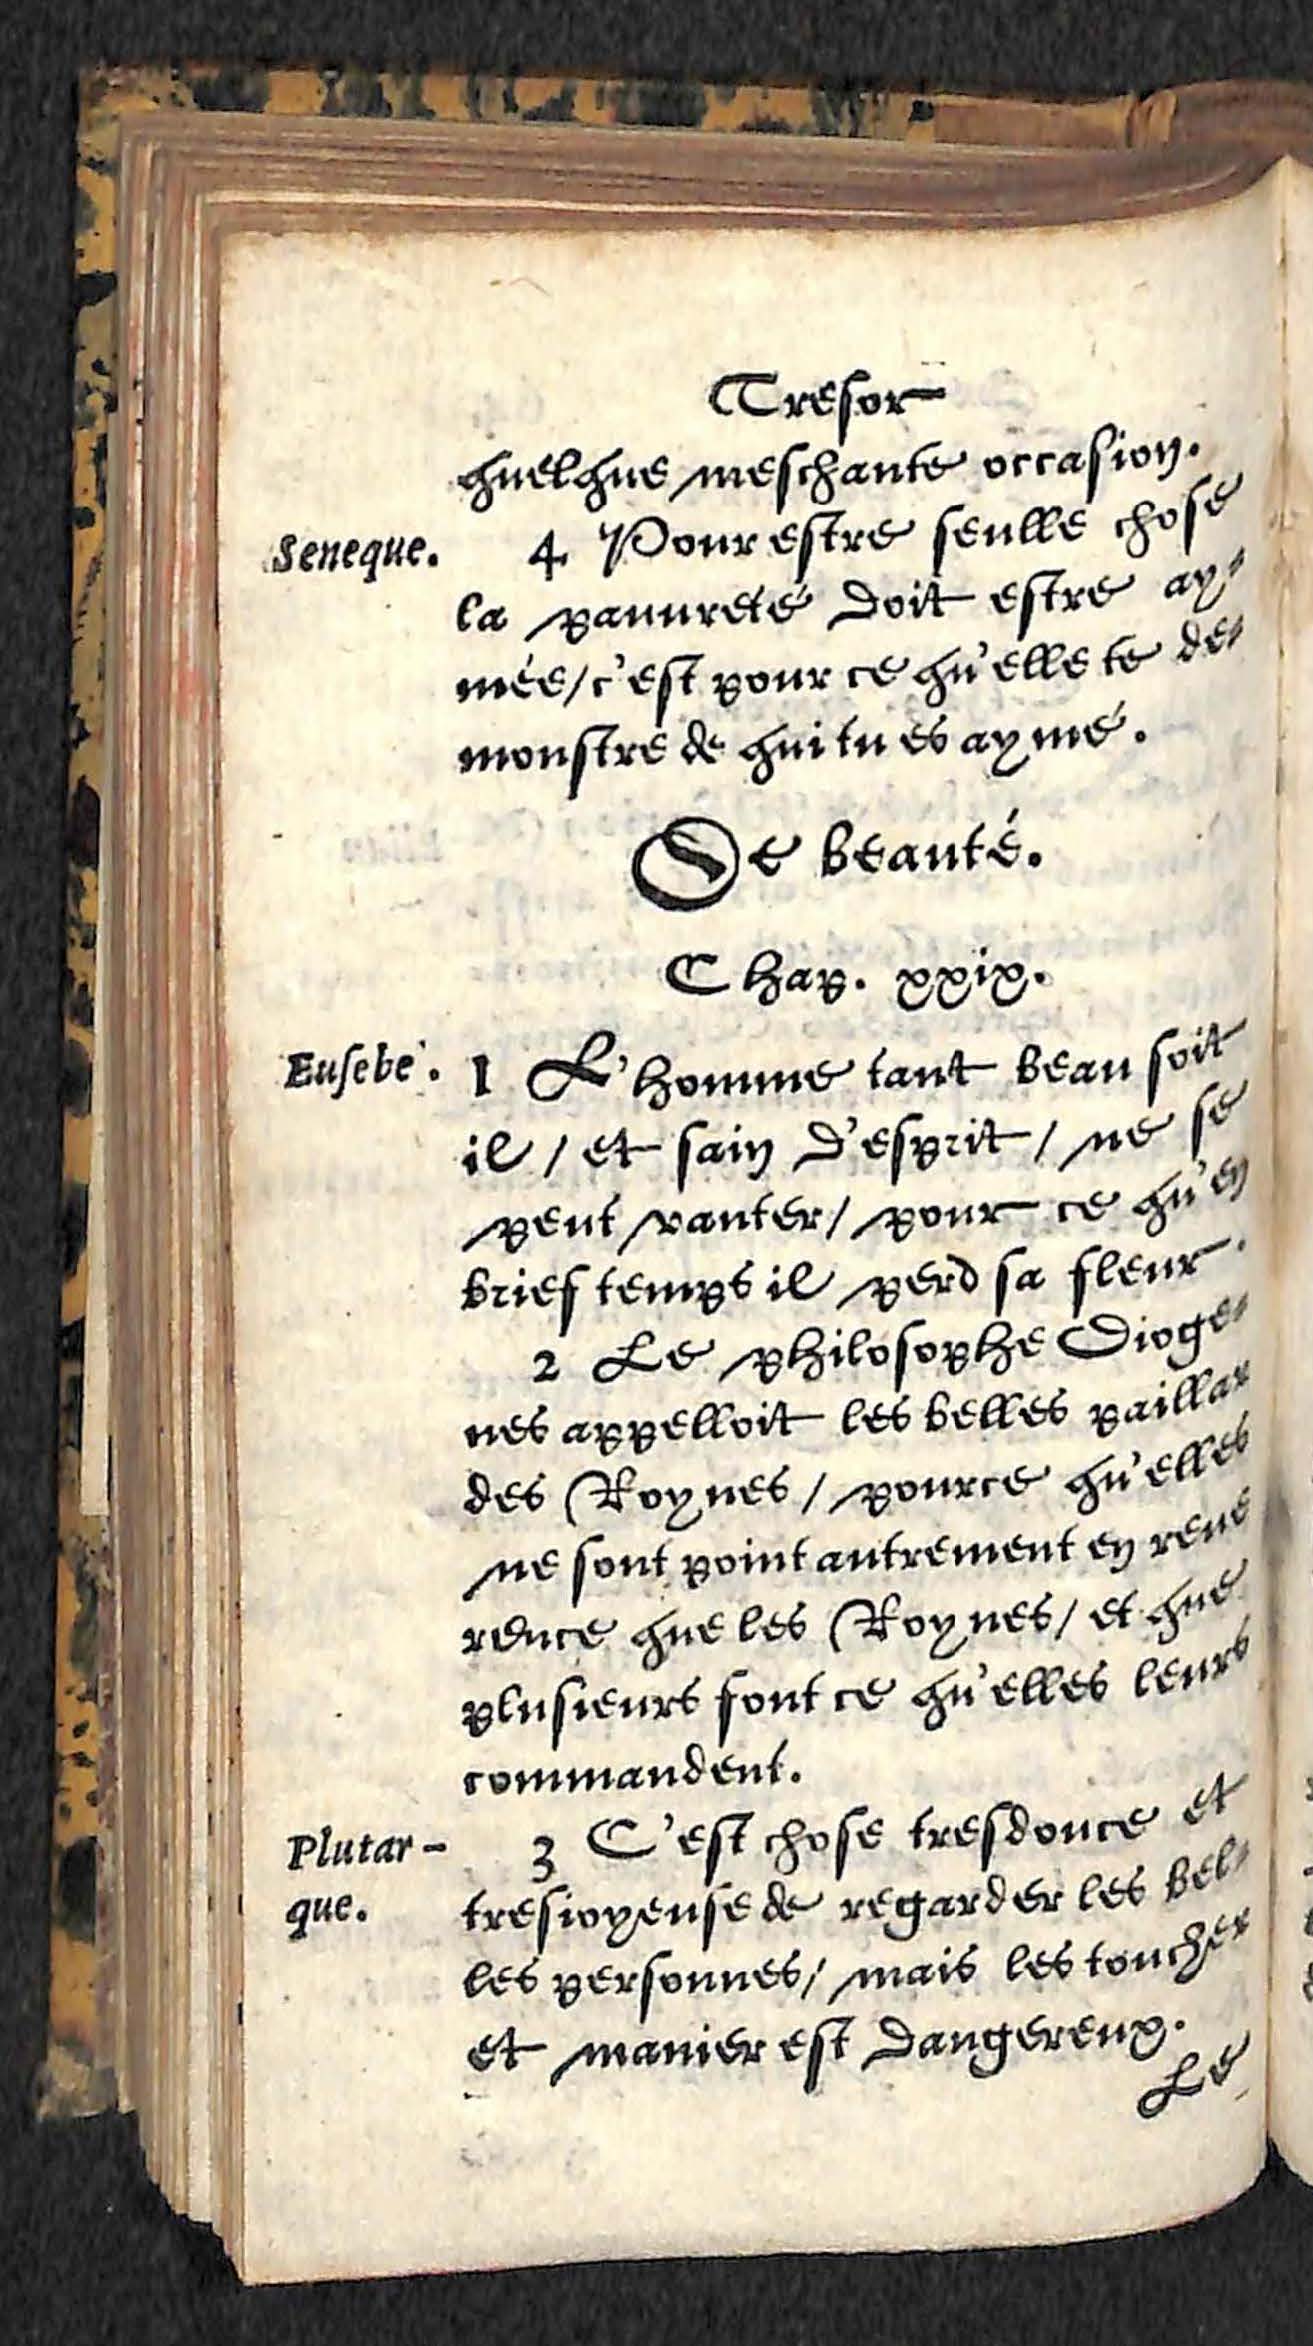 Tresor
quelque meschante occasion.
Seneque. 4 Pour estre seulle chose
la pauureté doit estre ay-
mée/ c'est pour ce qu'elle te de-
monstre de qui tu es aymé.
De beauté.
Chap. xxix.
Eusebe. 1 L'homme tant beau soit
il / et sain d'esprit / ne se
peut vanter/ pour ce qu'en
brief temps il perd sa fleur.
2 Le philosophe Dioge-
nes appelloit les belles paillar
des Roynes / pource qu'elles
ne sont point autrement en reue
rence que les Roynes/ et que
plusieurs font ce qu'elles leurs
commandent.
Plutar- 3 C'est chose tresdouce et
que. tresioyeuse de regarder les bel-
les personnes/ mais les toucher
et manier est dangereux.
Le